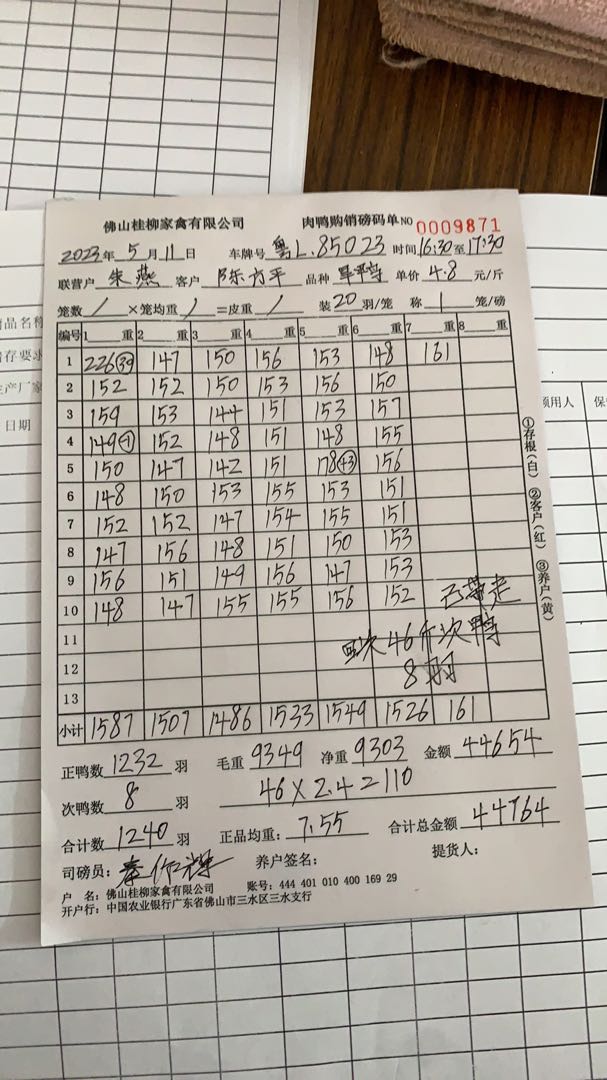 佛山桂柳家禽有限公司 肉鸭购销磅码单 NO 0009871
2023年5月11日 车牌号 粤L.85023 时间16:30至17:30
联营户 朱燕 客户 陈方平 品种 单价 4.8 元/斤
笼数 / ×笼均重 / =皮重 / 装20羽/笼 称 1 笼/磅
编号 1 重 2 重 3 重 4 重 5 重 6 重 7 重 8 重
1 226(39) 147 150 156 153 148 161
2 152 152 150 153 156 150
3 159 153 144 151 153 157
4 149(-1) 152 148 151 148 155
5 150 147 142 151 178(+3) 156
6 148 150 153 155 153 151
7 152 152 147 154 155 151
8 147 156 148 151 150 153
9 156 151 149 156 147 153
10 148 147 155 155 156 152 已带走
11 46斤次鸭
12 8羽
13
小计 1587 1507 1486 1533 1549 1526 161
正鸭数 1232 羽 毛重 9349 净重 9303 金额 44654
次鸭数 8 羽 46×2.4=110
合计数 1240 羽 正品均重: 7.55 合计总金额 44764
司磅员: 养户签名: 提货人:
户 名: 佛山桂柳家禽有限公司 账号: 444 401 010 400 169 29
开户行: 中国农业银行广东省佛山市三水区三水支行
①存根(白) ②客户(红) ③养户(黄)
品名称
存要求
产厂家
日期
领用人 保